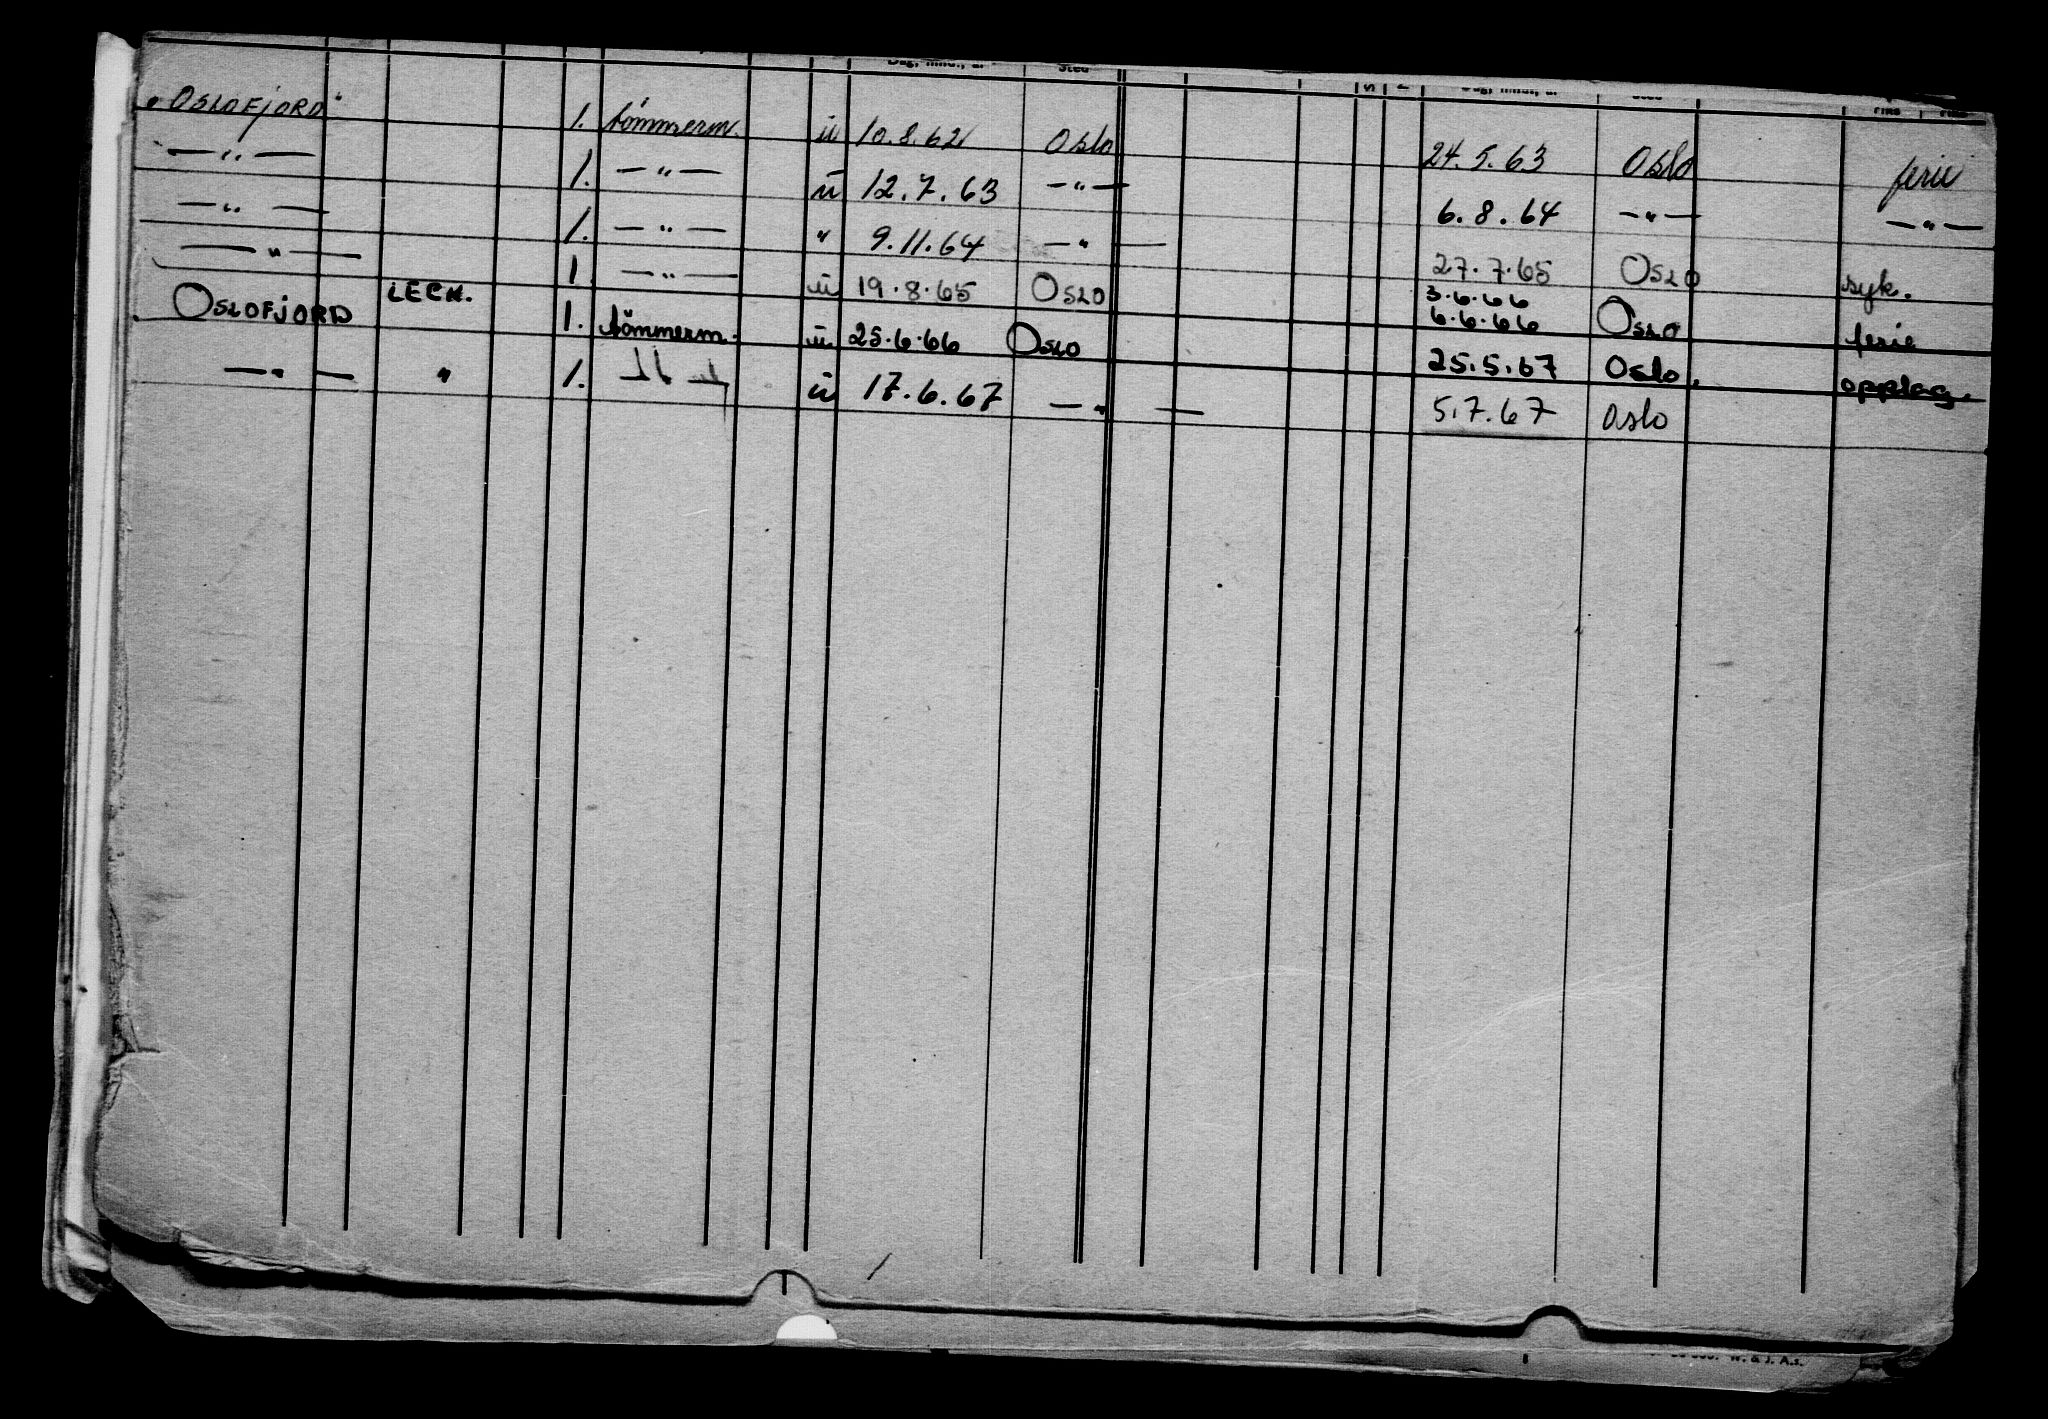 Dag, mnd., år Sted S Dag, mnd., år Sted Fiks Fiks
"OSLOFJORD" 1. tömmerm. ü 10.8.62 Oslo 24.5.63 Oslo ferie
—"— 1. —"— ü 12.7.63 —"— 6.8.64 —"— —"—
—"— 1. —"— " 9.11.64 —"— 27.7.65 OSLO syk.
—"— 1. —"— ü 19.8.65 OSLO 3.6.66 6.6.66 OSLO ferie
OSLOFJORD LECH. 1. tömmerm. ü 25.6.66 OSLO 25.5.67 Oslo. opplag.
—"— " 1. ü 17.6.67 —"— 5.7.67 Oslo
W. & J. A.s.